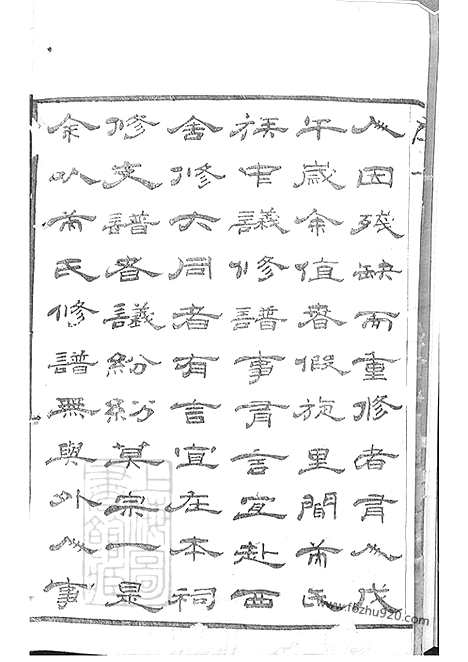 人因殘缺而重修者有人戊
午歲余值春假旋里間氏
族中議修譜事有言宜赴西
舍修大同者有言宜在本祠
修支譜者議紛紛莫宗一是
余以氏修譜無與外人事
www.fozhu920.com